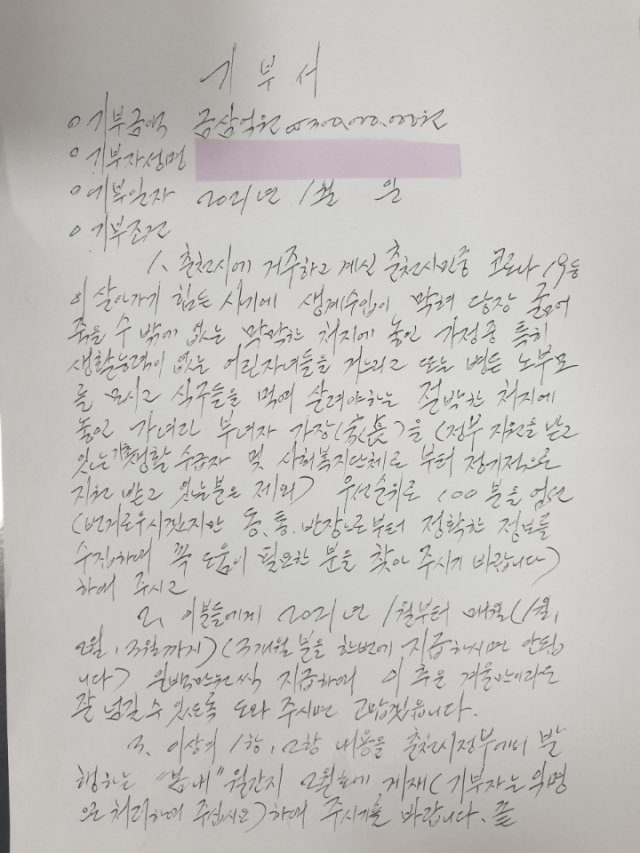 기부서
○ 기부금액 금삼억원 ₩300,000,000원
○ 기부자성명
○ 기부일자 2021년 1월 일
○ 기부조건
1. 춘천시에 거주하고 계신 춘천시민중 코로나19등
이 살아가기 힘든 시기에 생계수입이 막혀 당장 굶어
죽을 수 밖에 없는 막막한 처지에 놓인 가정중 특히
생활능력이 없는 어린자녀들을 거느리고 또는 병든 노부모
를 모시고 식구들을 먹여 살려야하는 절박한 처지에
놓인 가녀린 부녀자 가장(家長)을 (정부 지원을 받고
있는 기초생활 수급자 및 사회복지단체로 부터 정기적으로
지원 받고 있는분은 제외) 우선순위로 100분을 엄선
(번거로우시겠지만 동, 통, 반장으로부터 정확한 정보를
수집하여 꼭 도움이 필요한 분을 찾아 주시기 바랍니다)
하여 주시고
2. 이분들에게 2021년 1월부터 매월(1월,
2월, 3월까지)(3개월분을 한번에 지급하시면 안됩
니다) 일백만원씩 지급하여 이 추운 겨울만이라도
잘 넘길 수 있도록 도와 주시면 고맙겠습니다.
3. 이상의 1항, 2항 내용을 춘천시정부에서 발
행하는 "봄내" 월간지 2월호에 게재(기부자는 익명
으로 처리하여 주십시요)하여 주시기를 바랍니다. 끝